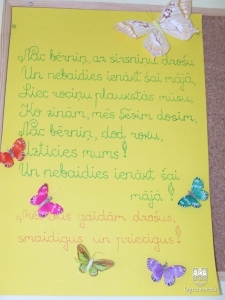 Nāc bērniņ, ar sirsniņu drošu
Un nebaidies ienākt šai mājā,
Liec rociņu plaukstās mūsu,
Ko zinām, mēs Tev dosim,
Nāc bērniņ, dod roku,
Uzticies mums!
Un nebaidies ienākt šai
mājā!
Mēs Jūs gaidām drošus,
smaidīgus un priecīgus!